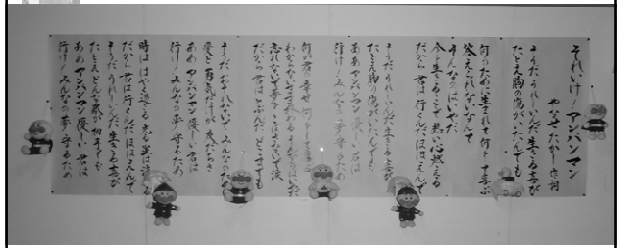 それいけ!アンパンマン
やなせ・たかし 作詞
そうだ うれしいんだ 生きる喜び
たとえ胸の傷がいたんでも
何のために生まれて何をして
答えられないなんて
そんなのはいやだ
今を生きることで 熱い心燃える
だから 君は行くんだ ほほえんで
そうだ うれしいんだ 生きる喜び
たとえ胸の傷がいたんでも
ああ アンパンマン 優しい君は
行け!みんなの夢守るため
何が君の幸せ 何をして喜ぶ
わからないまま終わる そんなのはいやだ
忘れないで夢を こぼさないで涙
だから 君はとぶんだ どこまでも
そうだ おそれないで みんなのため
愛と勇気だけが 友だちさ
ああ アンパンマン 優しい君は
行け!みんなの夢守るため
時は はやくすぎる 光る星は消える
だから 君は行くんだ ほほえんで
そうだ うれしいんだ 生きる喜び
たとえどんな敵が相手でも
ああ アンパンマン 優しい君は
行け!みんなの夢守るため